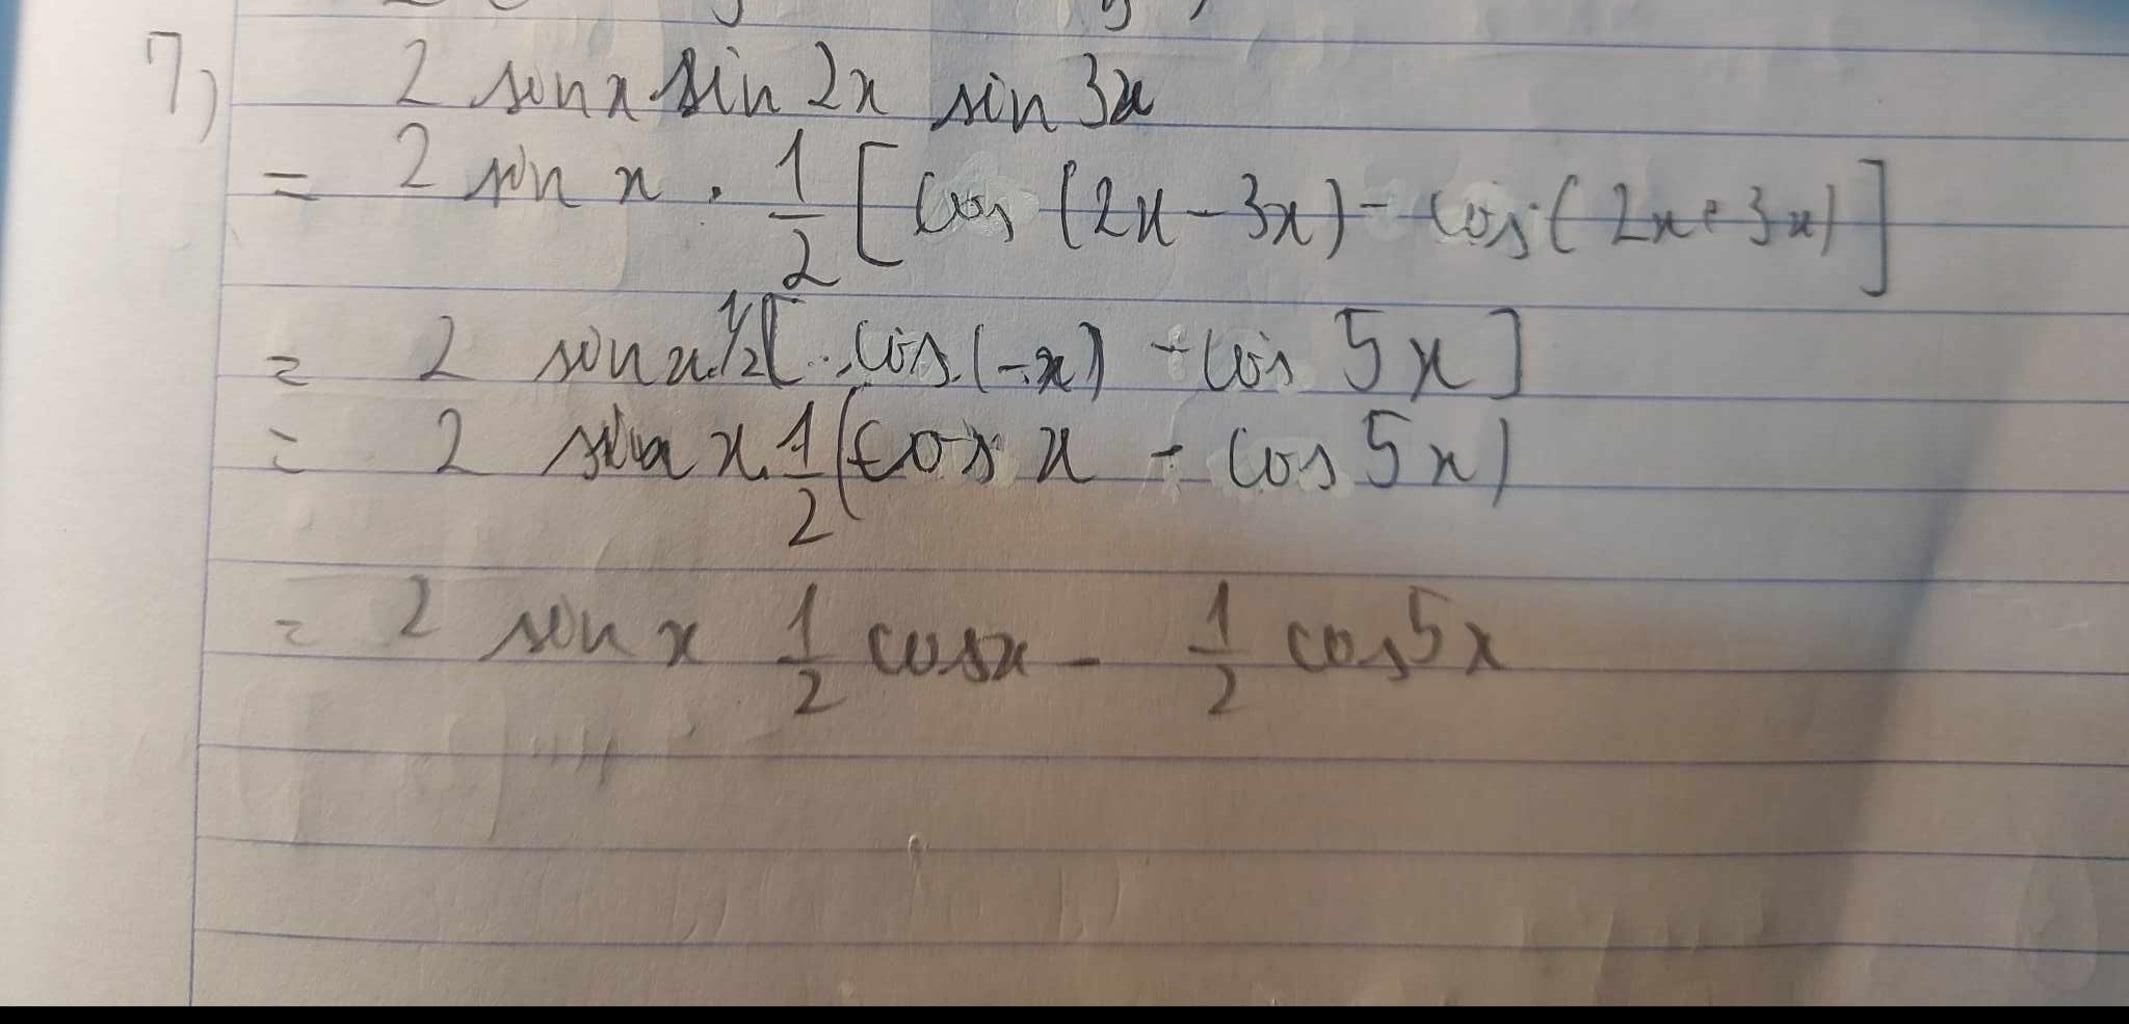 7) 2 sin x sin 2x sin 3x
= 2 sin x . 1/2 [cos (2x - 3x) - cos (2x + 3x)]
= 2 sin x . 1/2 [cos (-x) - cos 5x]
= 2 sin x . 1/2 (cos x - cos 5x)
= 2 sin x 1/2 cos x - 1/2 cos 5x